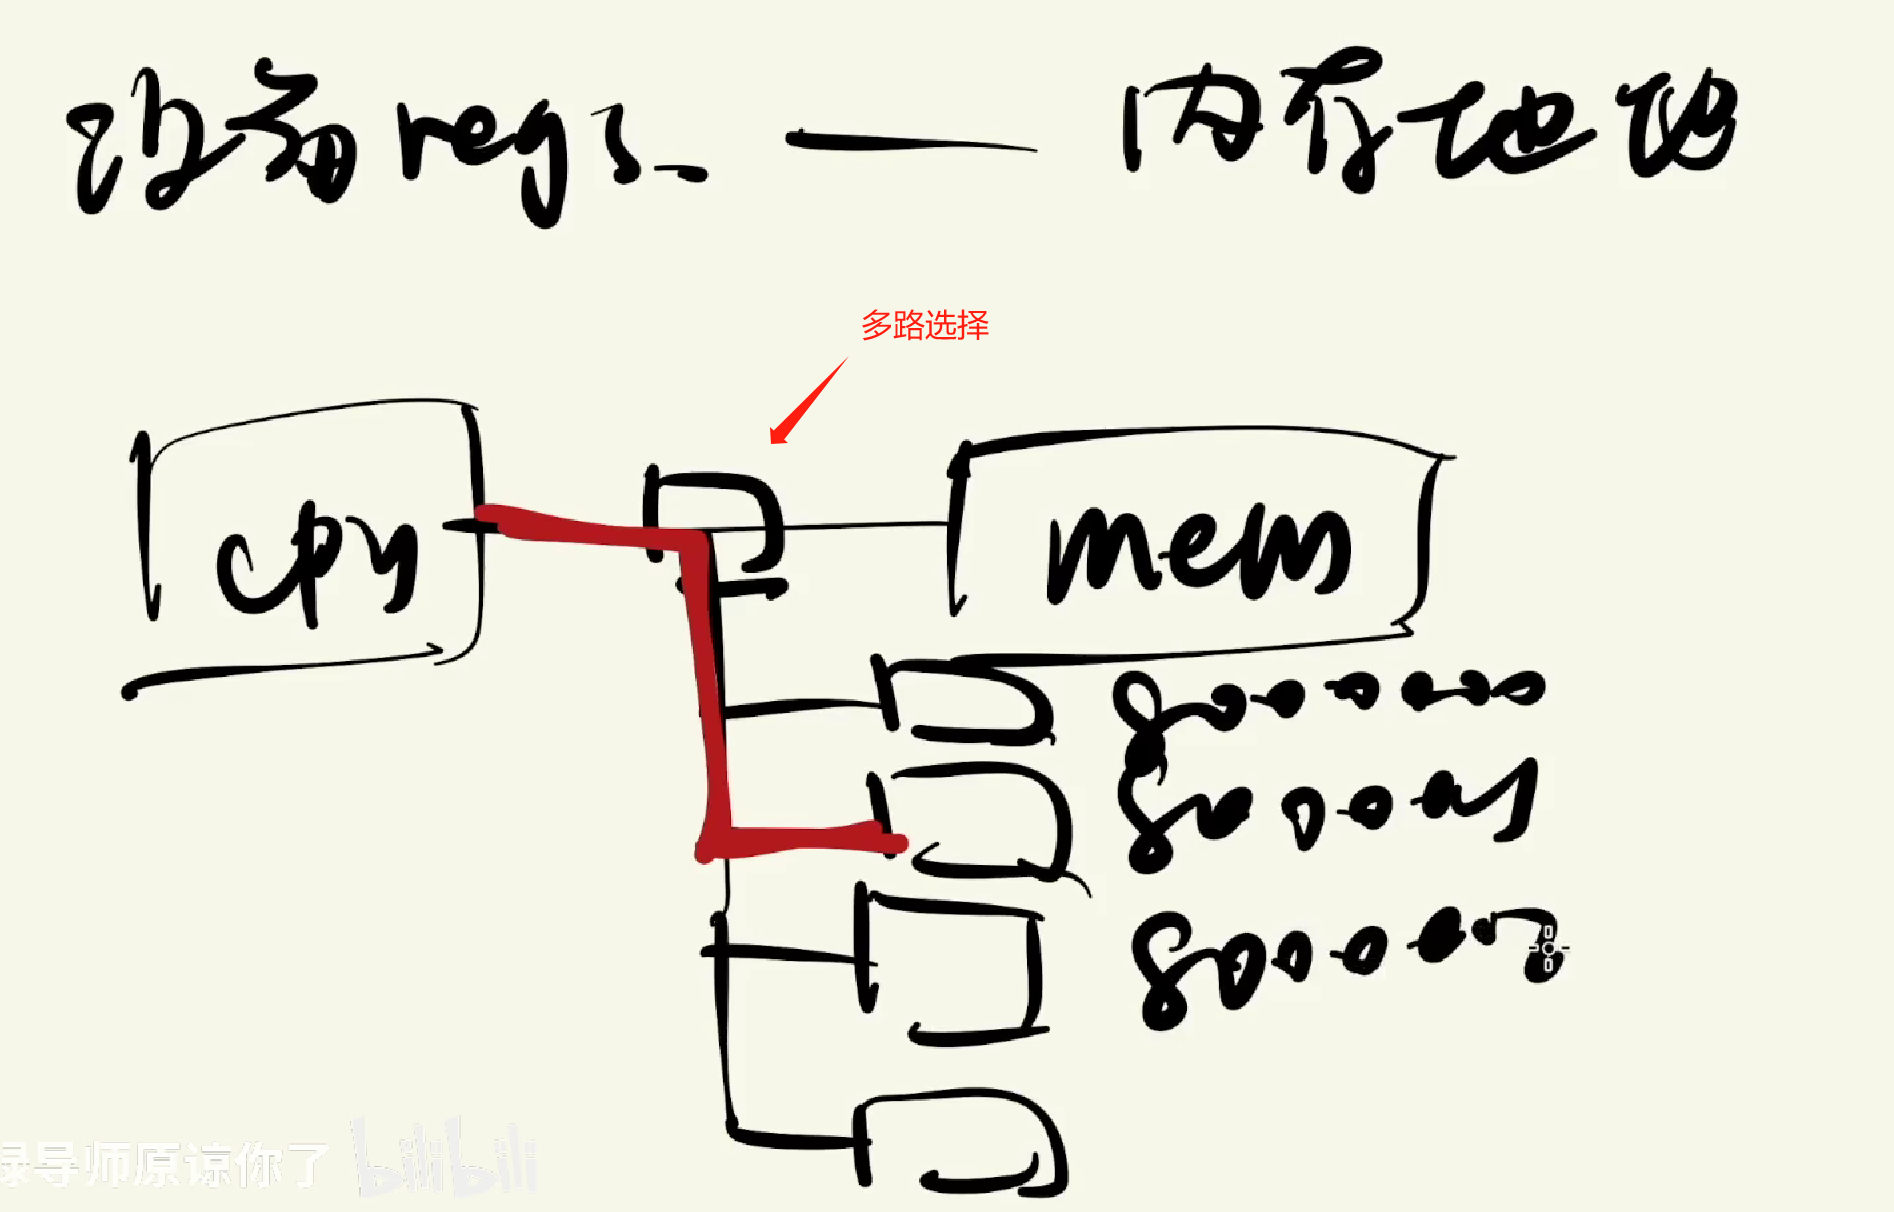 设备 reg — 内存地址
多路选择
cpu
mem
8000000
8000001
8000002
绿导师原谅你了 bilibili